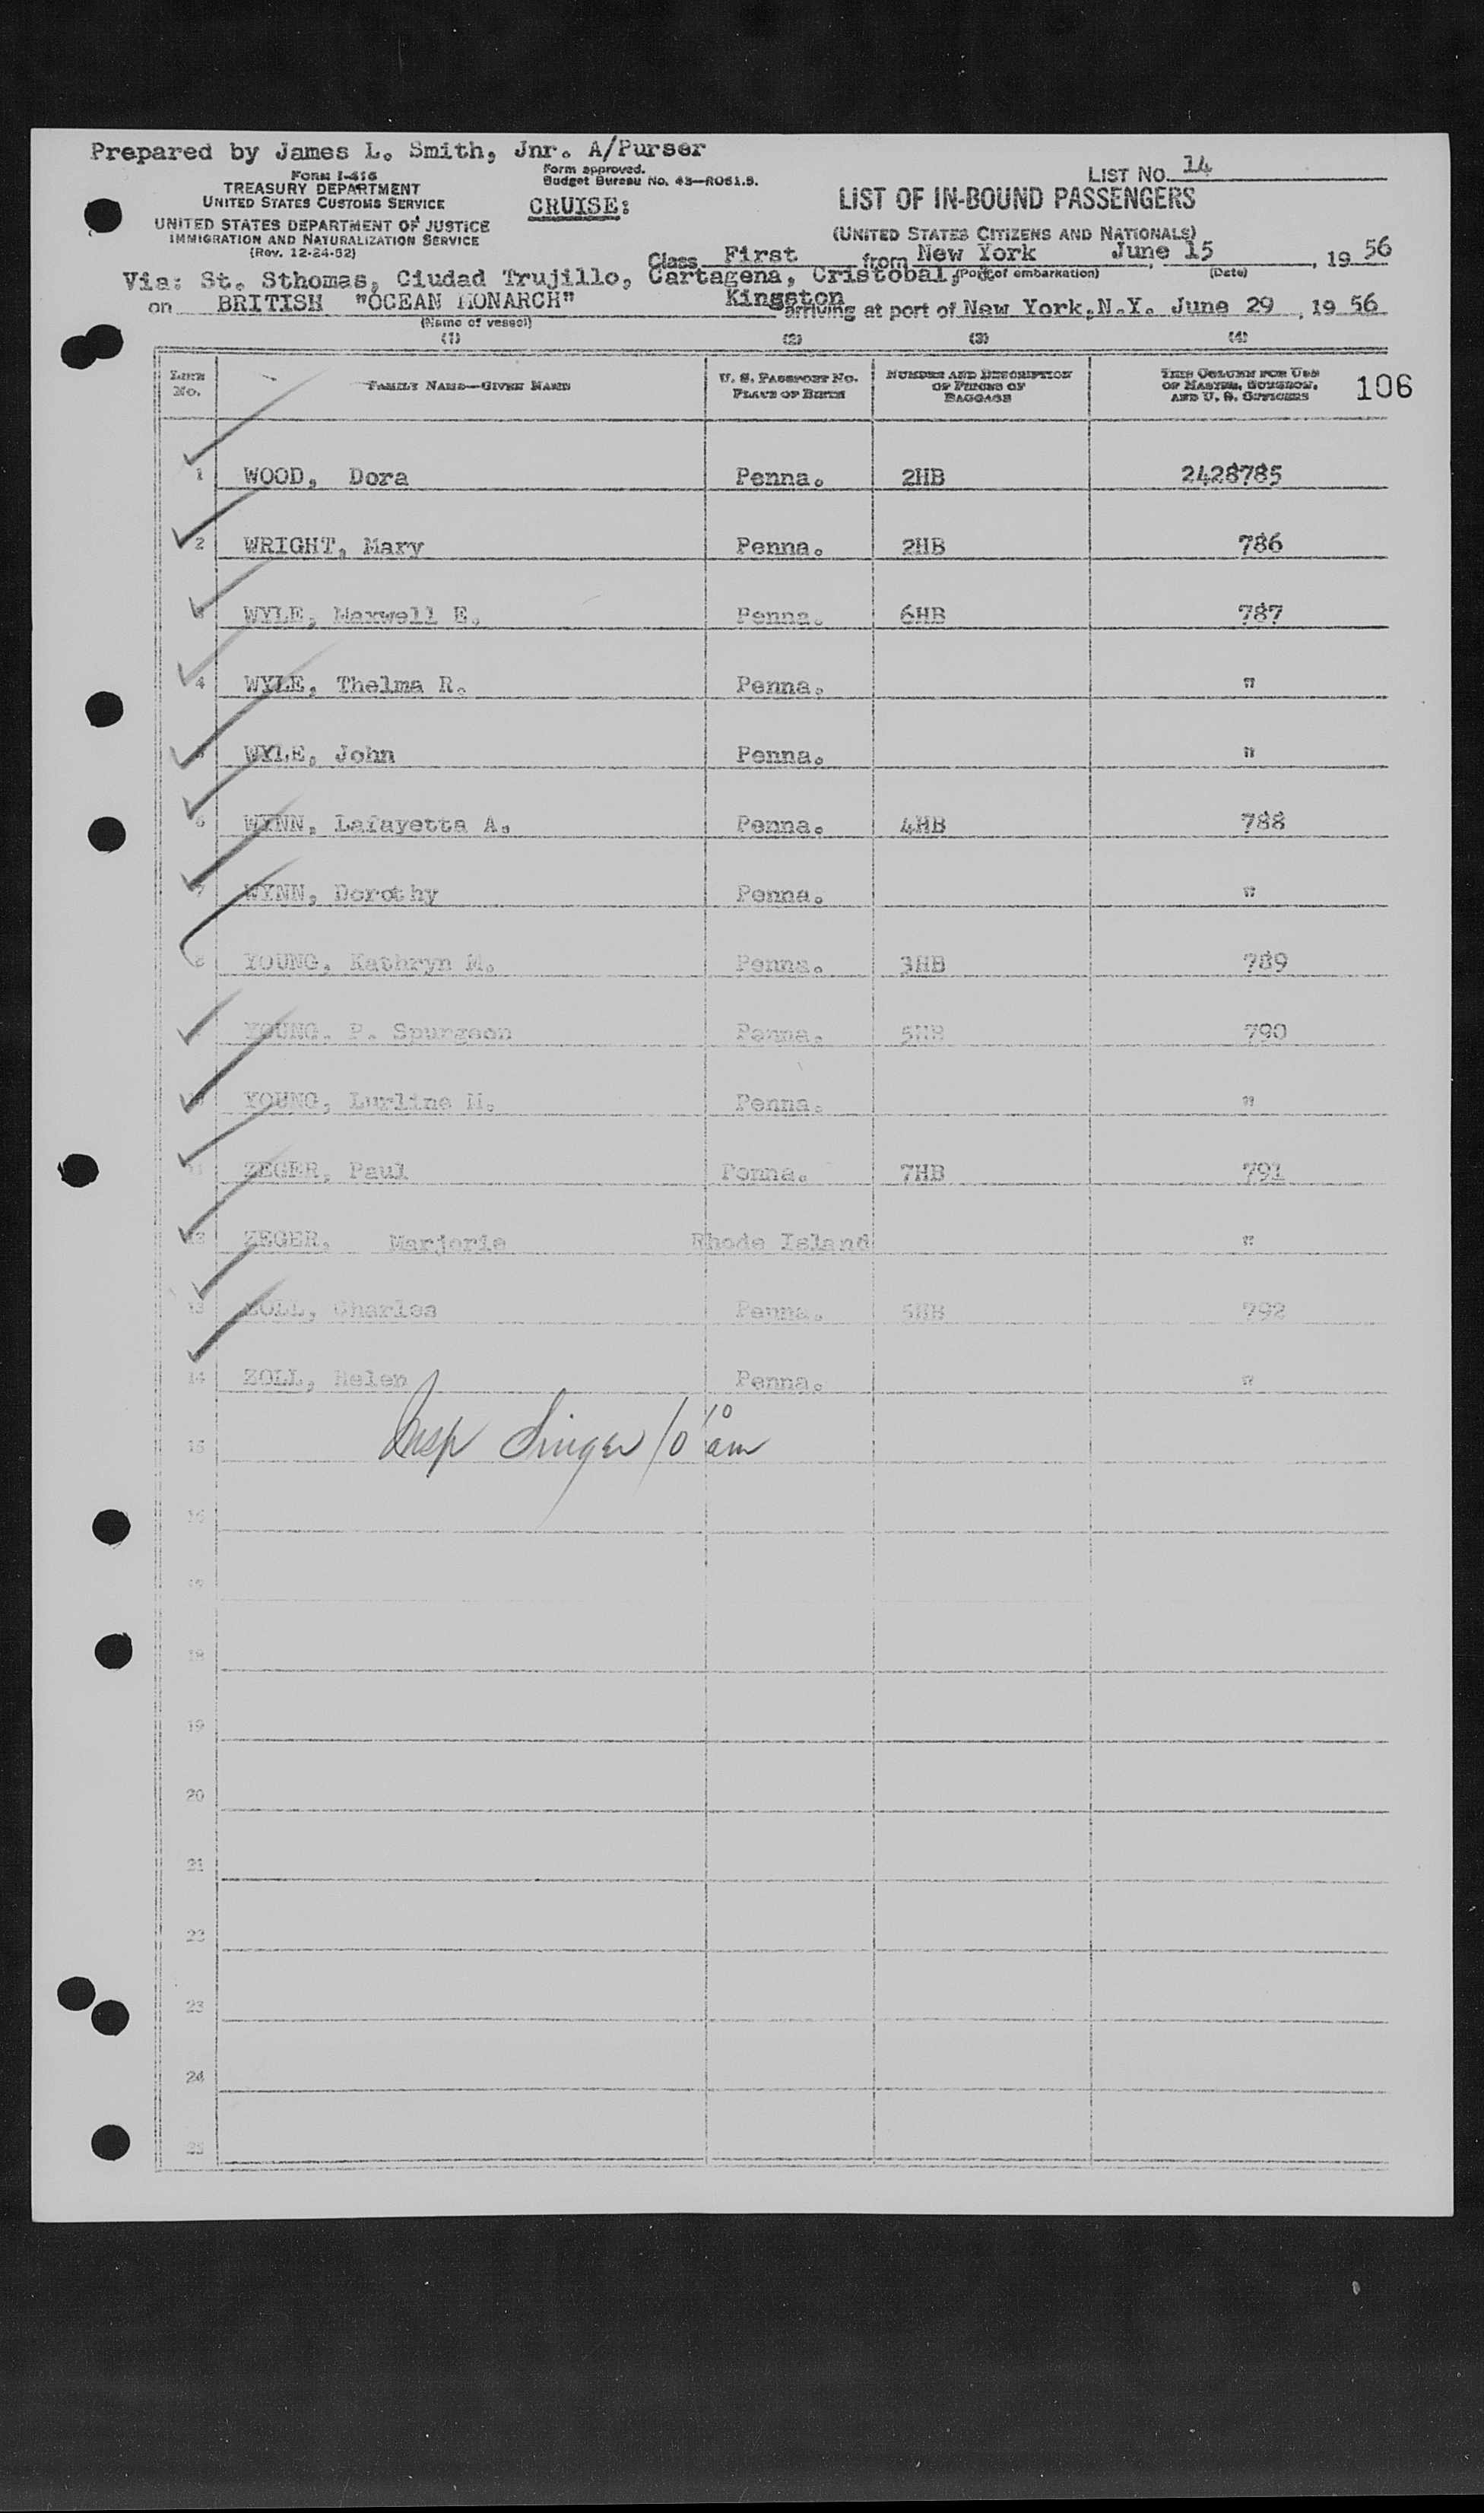 Prepared by James L. Smith, Jnr. A/Purser
Form I-416
TREASURY DEPARTMENT
UNITED STATES CUSTOMS SERVICE
UNITED STATES DEPARTMENT OF JUSTICE
IMMIGRATION AND NATURALIZATION SERVICE
(Rev. 12-24-52)
Form approved.
Budget Bureau No. 43—R061.5.
CRUISE:
LIST No. 14
LIST OF IN-BOUND PASSENGERS
(UNITED STATES CITIZENS AND NATIONALS)
Class First from New York, June 15, 1956
(Port of embarkation) (Date)
Via: St. Sthomas, Ciudad Trujillo, Cartagena, Cristobal,
Kingston
on BRITISH "OCEAN MONARCH" arriving at port of New York, N.Y. June 29, 1956
(Name of vessel)
(1) (2) (3) (4)
LINE No. FAMILY NAME—GIVEN NAME U. S. PASSPORT No. PLACE OF BIRTH NUMBER AND DESCRIPTION OF PIECES OF BAGGAGE THIS COLUMN FOR USE OF MASTER, SURGEON, AND U. S. OFFICERS 106
1 WOOD, Dora Penna. 2HB 2428785
2 WRIGHT, Mary Penna. 2HB 786
3 WYLE, Maxwell E. Penna. 6HB 787
4 WYLE, Thelma R. Penna. "
5 WYLE, John Penna. "
6 WYNN, Lafayetta A. Penna. 4HB 788
7 WYNN, Dorothy Penna. "
8 YOUNG. Kathryn M. Penna. 3HB 789
YOUNG. P. Spurgeon Penna. 5HB 790
10 YOUNG, Lurline M. Penna. "
11 ZEGER, Paul Penna. 7HB 791
12 ZEGER, Marjorie Rhode Island "
13 ZOLL, Charles Penna. 5HB 792
14 ZOLL, Helen Penna. "
15 Insp Singer 10 10 am
16
17
18
19
20
21
22
23
24
25